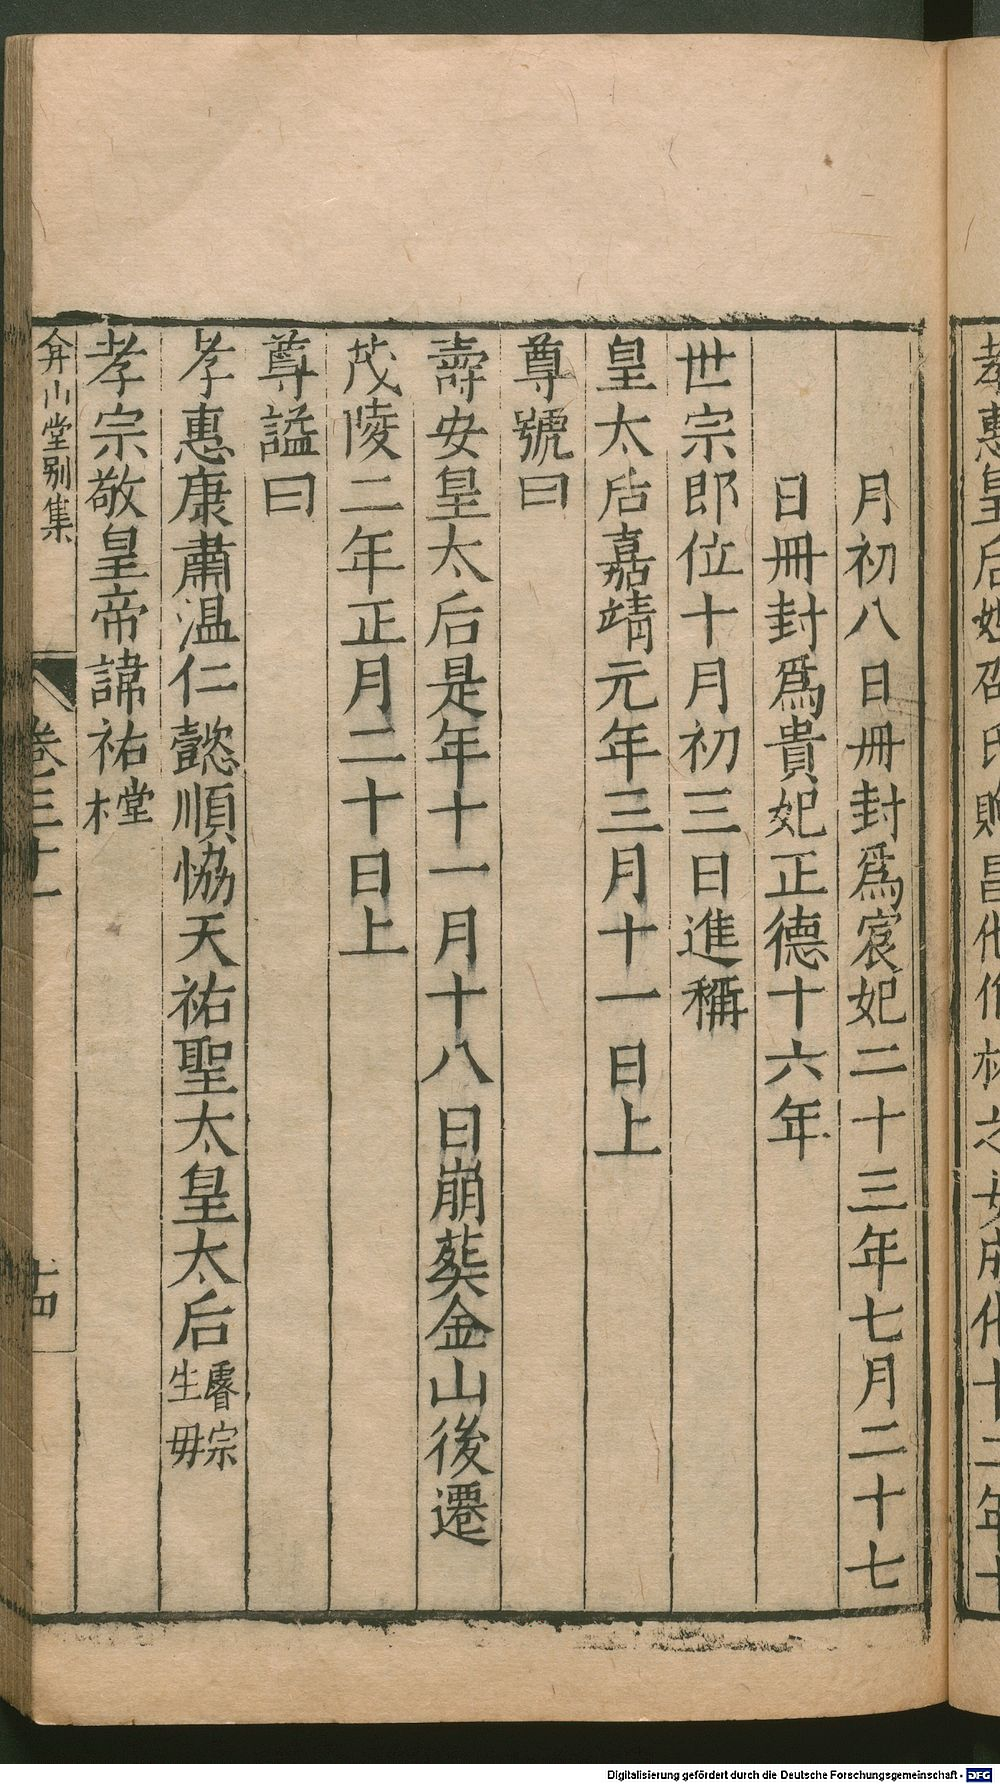 月初八日冊封爲宸妃二十三年七月二十七
日冊封爲貴妃正德十六年
世宗即位十月初三日進稱
皇太后嘉靖元年三月十一日上
尊號曰
壽安皇太后是年十一月十八日崩葬金山後遷
茂陵二年正月二十日上
尊謚曰
孝惠康肅温仁懿順恊天祐聖太皇太后睿宗生毋
孝宗敬皇帝諱祐樘
弇山堂别集
卷三十一
十四
孝惠皇后妣邵氏贈昌化伯林之女成化十二年十
Digitalisierung gefördert durch die Deutsche Forschungsgemeinschaft - DFG